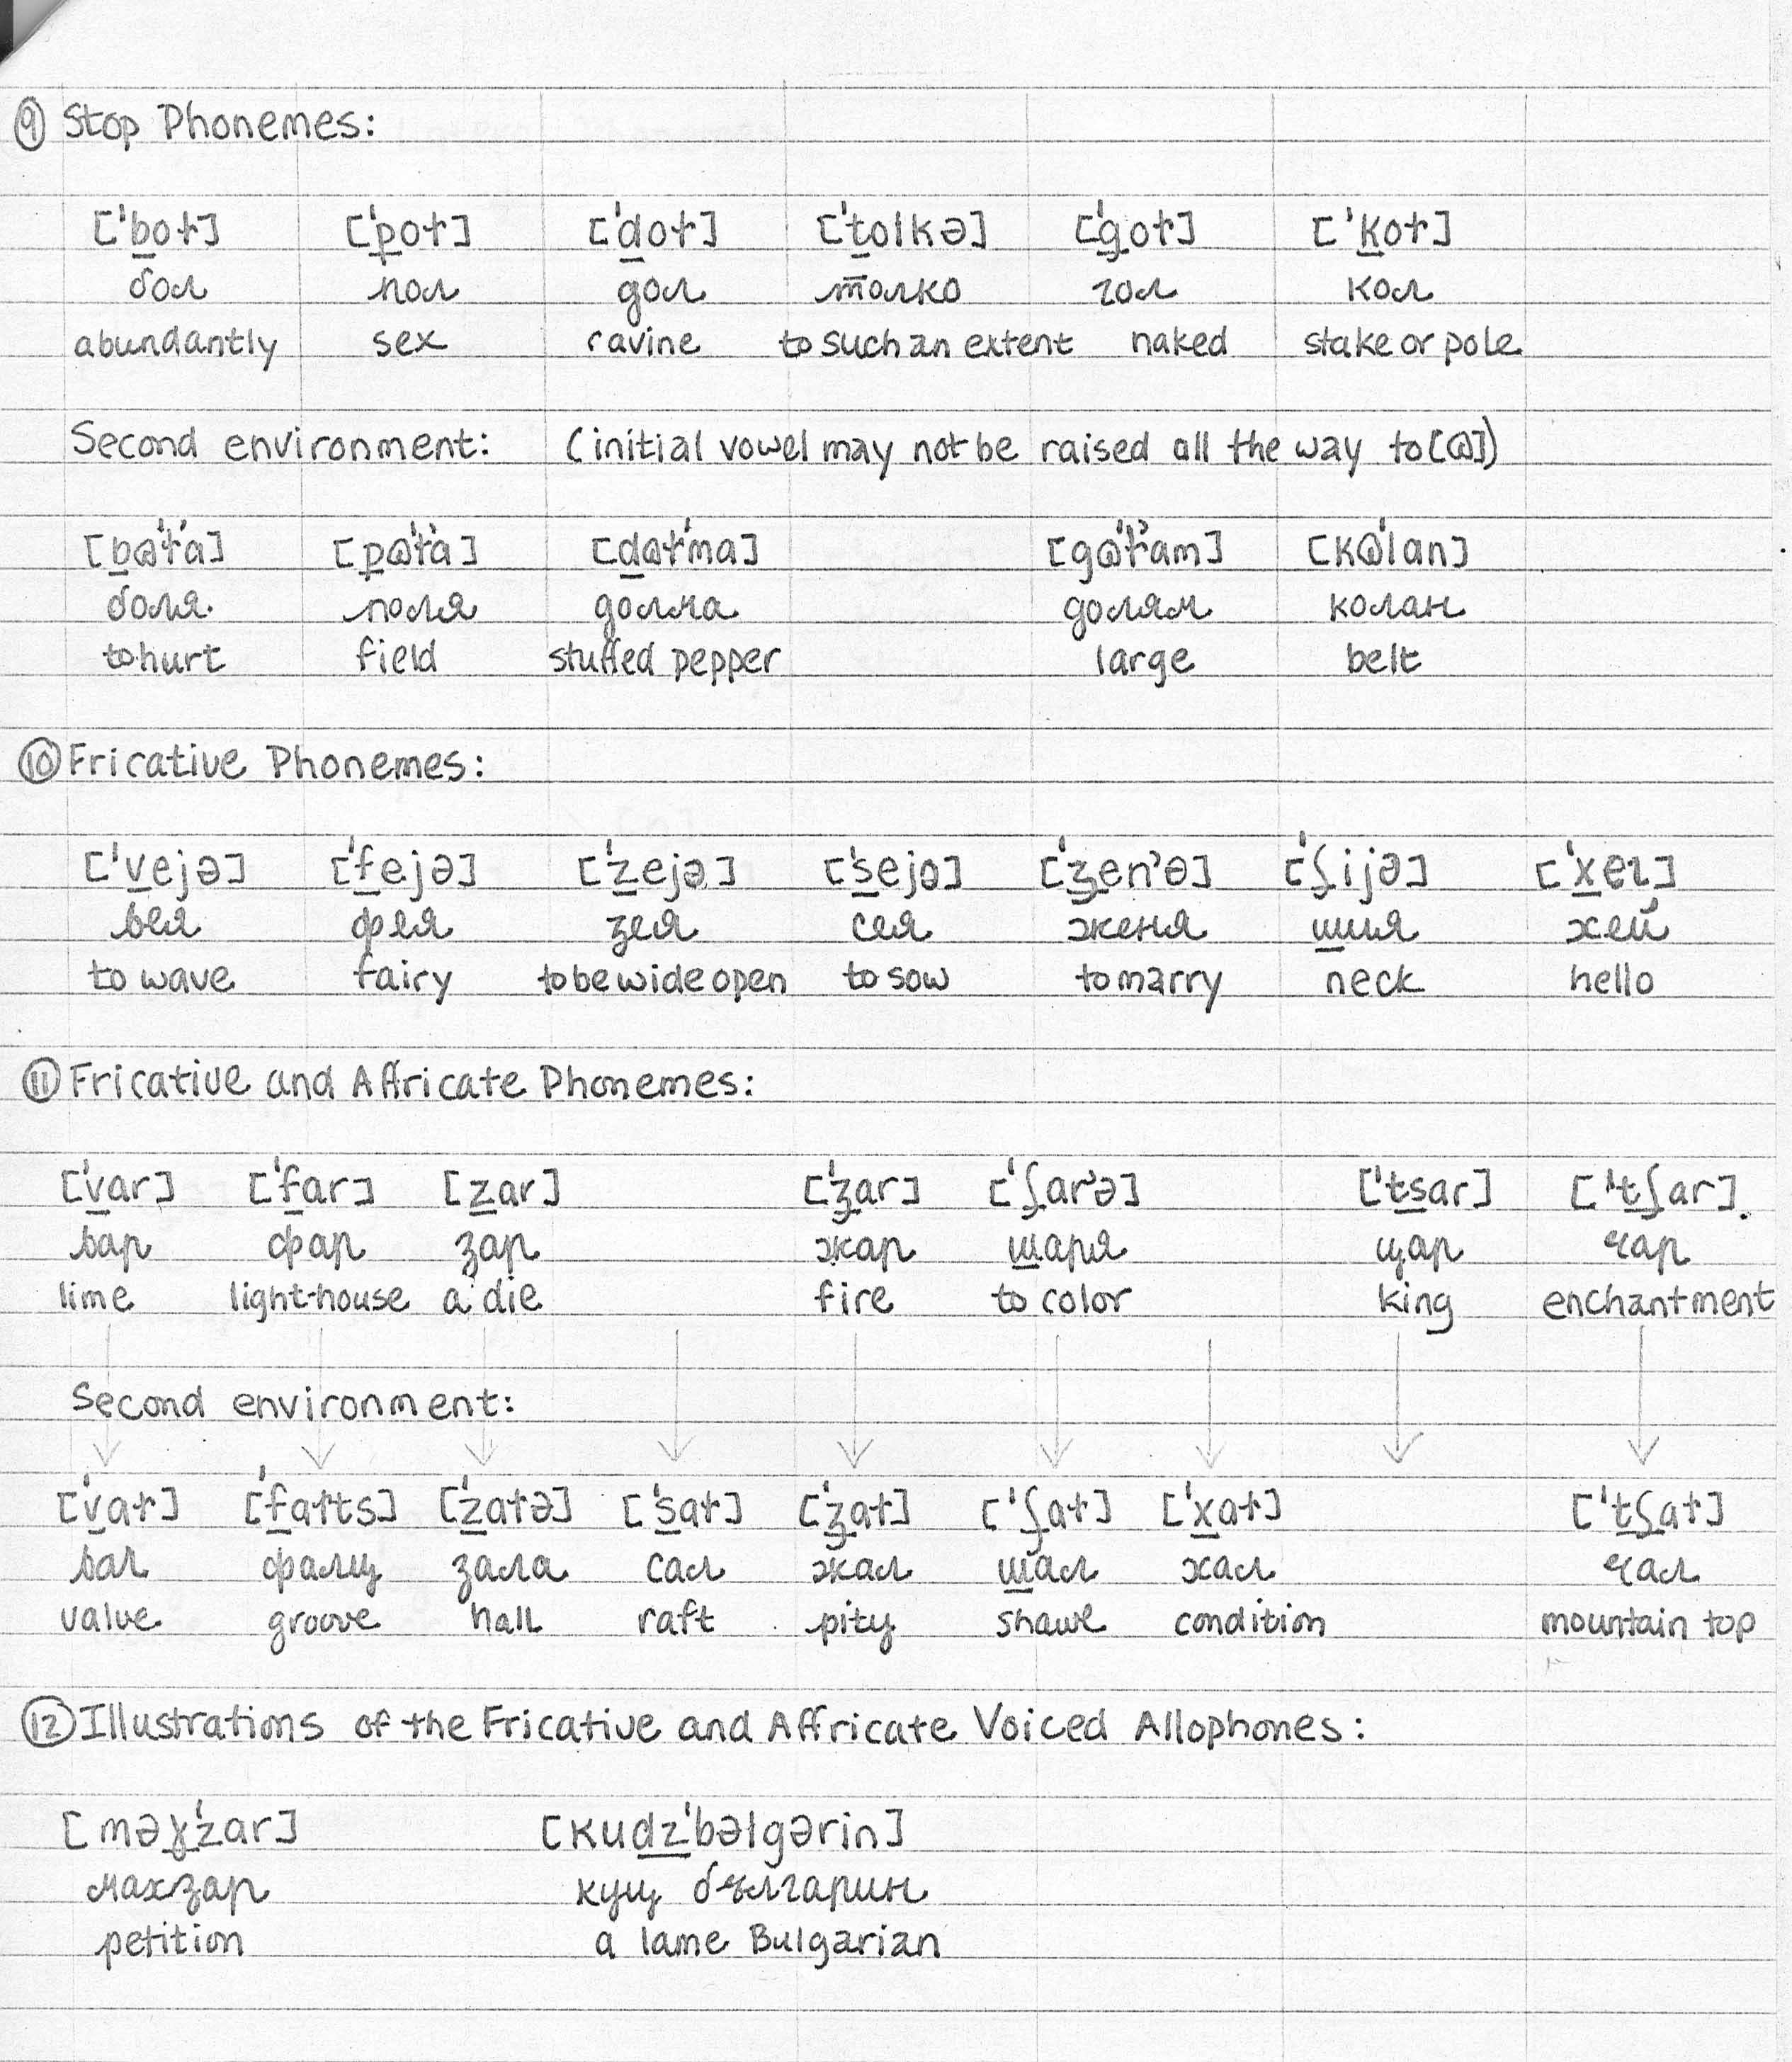 ⑨ Stop Phonemes:
['boɫ] ['poɫ] ['doɫ] ['tolkə] ['goɫ] ['koɫ]
бол пол дол толко гол кол
abundantly sex ravine to such an extent naked stake or pole
Second environment: (initial vowel may not be raised all the way to [ɷ])
[bɷ'ɫʼa] [pɷ'ɫʼa] [dɷɫ'ma] [gɷ'ɫʼam] [kɷ'lan]
боля поля долма голям колан
to hurt field stuffed pepper large belt
⑩ Fricative Phonemes:
['vejə] ['fejə] ['zejə] ['sejə] ['ʒenʼə] ['ʃijə] ['xeɪ]
вея фея зея сея женя шия хей
to wave fairy to be wide open to sow to marry neck hello
⑪ Fricative and Affricate Phonemes:
['var] ['far] [zar] ['ʒar] ['ʃarʼə] ['tsar] ['tʃar]
вар фар зар жар шаря цар чар
lime light-house a die fire to color king enchantment
Second environment:
['vaɫ] ['faɫts] ['zaɫə] ['saɫ] ['ʒaɫ] ['ʃaɫ] ['xaɫ] ['tʃaɫ]
вал фалц зала сал жал шал хал чал
value groove hall raft pity shawl condition mountain top
⑫ Illustrations of the Fricative and Affricate Voiced Allophones:
[məɣ'zar] [kudz'bəlgərin]
махзар куц българин
petition a lame Bulgarian